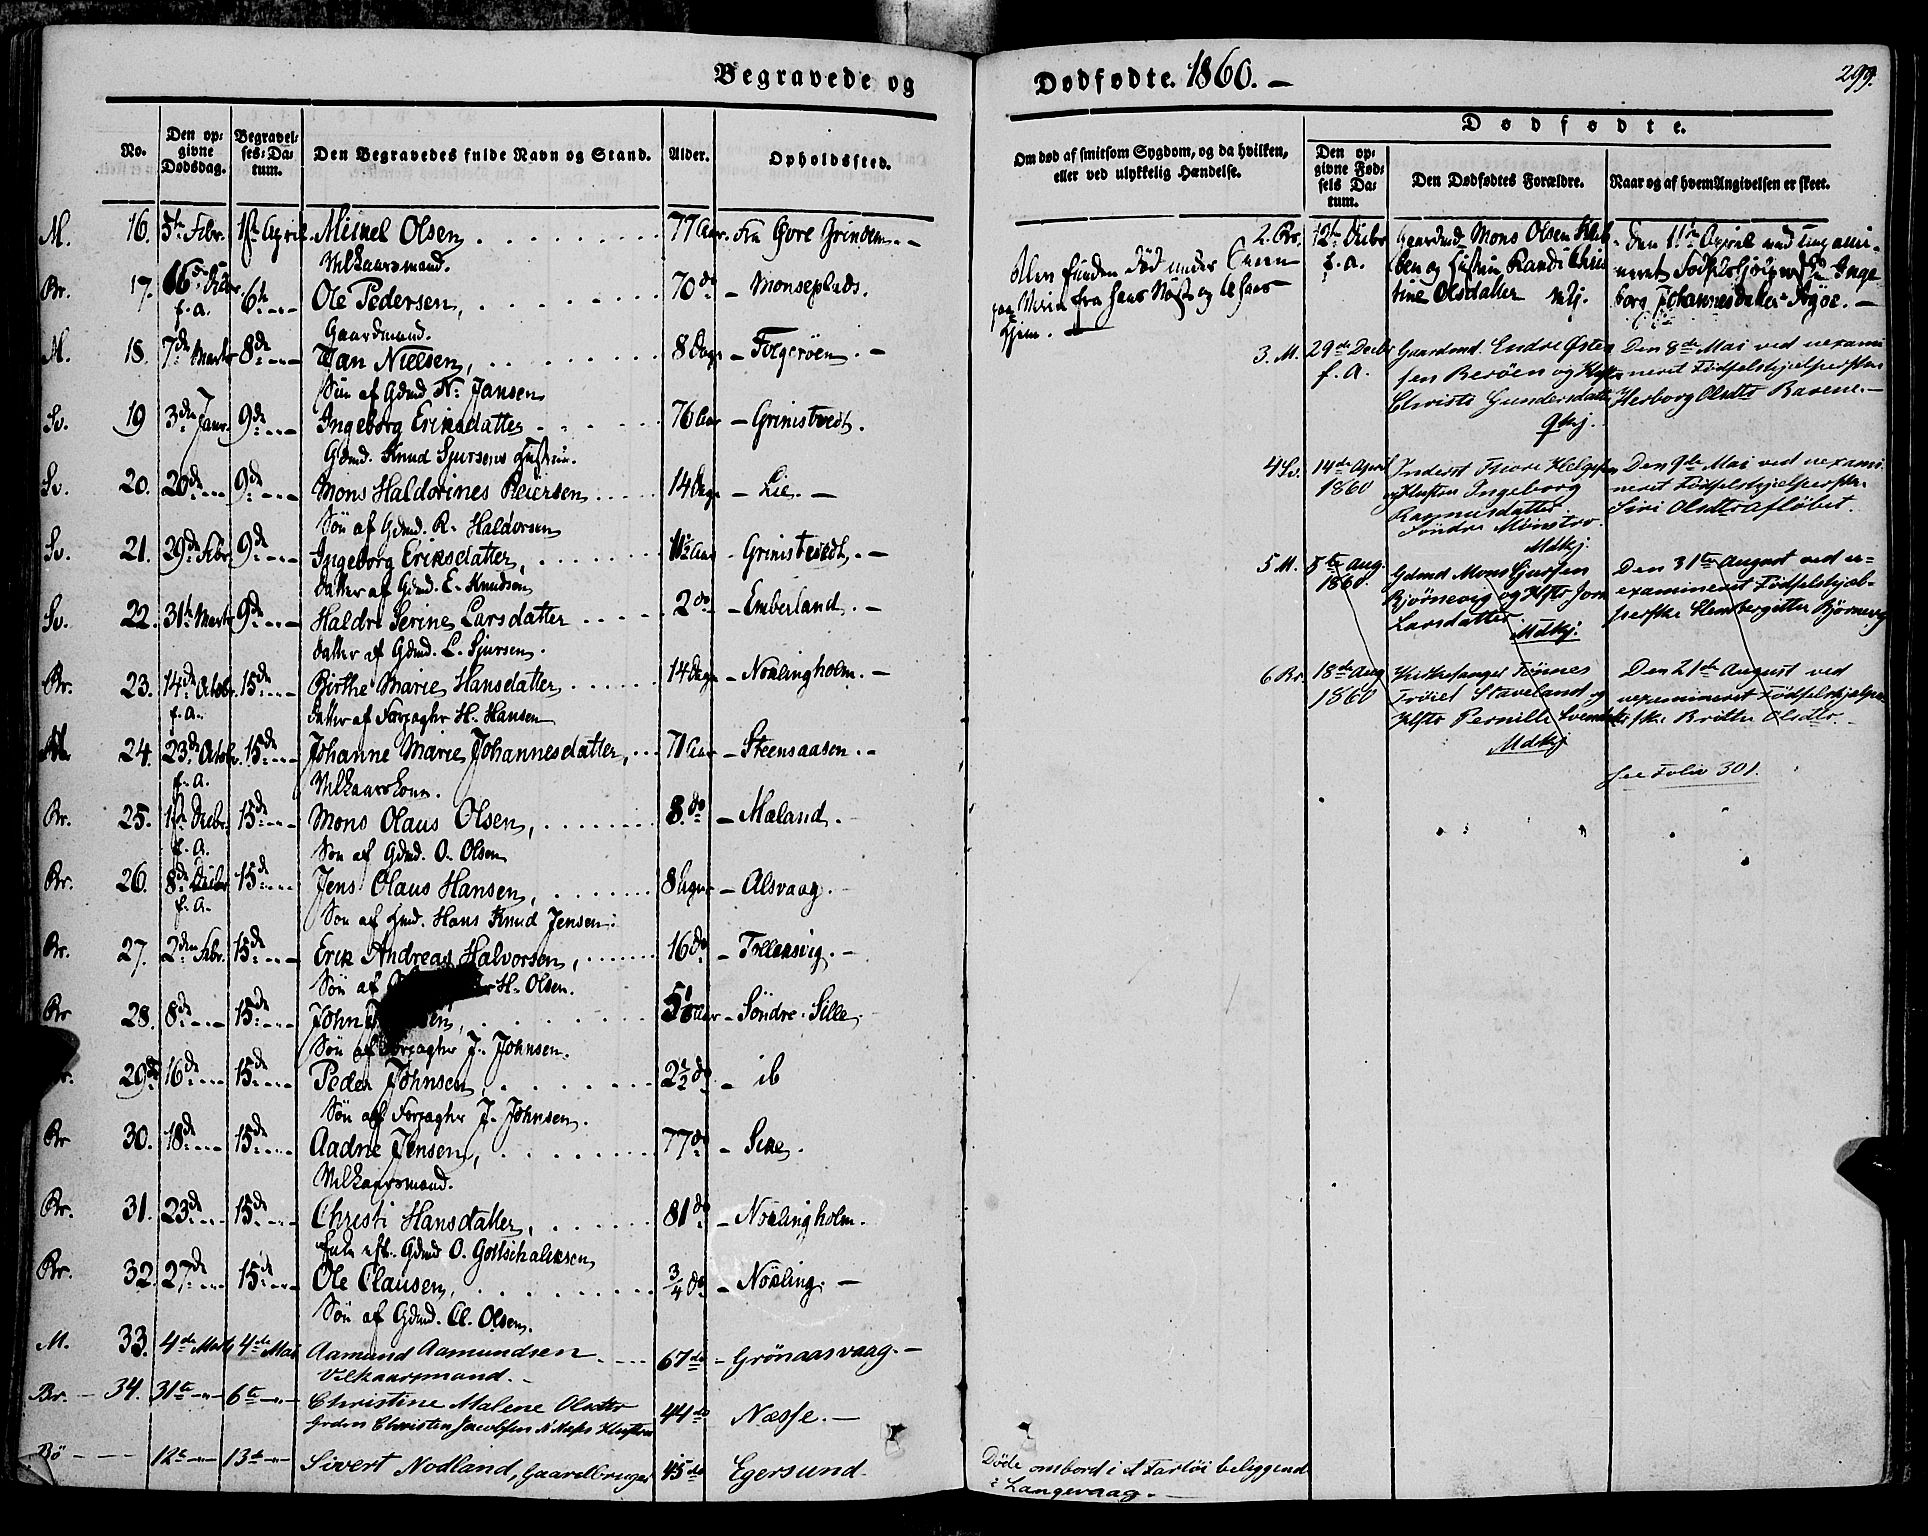 Begravede og
No.
Den op-
givne
Dødsdag.
Begravel-
ses-Da-
tum.
Den Begravedes fulde Navn og Stand.
Alder.
Opholdssted.
M. 16. 5te Febr. 1ste April. Mikkel Olsen 77 Aar. Fra Øvre Grindem. -
Vilkaarsmand.
Br. 17. f. a. 6te Ole Pedersen, 70 do - Monseplads.
Gaardmand.
M. 18. 7de Marts 8de Jan Nielsen, 8 Dage - Folgerøen. -
Søn af Gdmd. N. Jansen
Sv. 19 3die Janr. 9de Ingeborg Eriksdatter 76 Aar - Grinistvedt.
Gdmd. Knud Sjursens Hustru.
Sv. 20. 20de 9de Mons Haldorines Reiersen 14 Dage - Lie. -
Søn af Gdmd. R. Haldorsen
Sv. 21. 29de Febr. 9de Ingeborg Eriksdatter, 11½ Aar - Grinistvedt. -
Datter af Gdmd. E. Knudsen
Sv. 22. 31te Marts 9de Haldri Serine Larsdatter 2 do - Emberland. -
Datter af Gdmd. L. Sjursen.
Br. 23. 14de Octobr. f. a. 15de Birthe Marie Hansdatter 14 Dage - Nøklingholm. -
Datter af Forpagter H. Hansen
24. 23de Octobr. f. a. 15de Johanne Marie Johannesdatter, 71 Aar - Steensaasen. -
Vilkaarskone.
Br. 25. 1ste Decbr. f. a. 15de Mons Olaus Olsen, 8 do - Mæland.
Søn af Gdmd. O. Olsen
Br. 26. 8de Decbr. f. a. 15de Jens Olaus Hansen, 8 Dage - Alsvaag.
Søn af Hans Knud Jensen.
Br. 27. 2den Febr. 15de Erik Andreas Halvorsen, 16 do - Tollevsvig. -
Søn af H. Olsen.
Br. 28. 8de 15de John 5 Aar - Søndre Sille.
Søn af Forpagter J. Johnsen.
29. 16de 15de Peder Johnsen, 2½ do - ib
Søn af Forpagter J. Johnsen.
Br. 30. 18de 15de Aadne Jensen, 77 do -
Vilkaarsmand.
Br. 31. 23de 15de Christi Hansdatter, 81 do - Nøklingholm.
Enke eft. Gdmd O. Gottschalksen
Br. 32. 27de 15de Ole Clausen, ¾ do - Nøkling. -
Søn af Gdmd. Cl. Olsen.
M. 33. 4de Marts 4de Mai Aamund Aamundsen 67 do - Grønaasvaag. -
Vilkaarsmand. -
Br. - 34. 31te 6te Christine Malene Olsdtr 44 do Næsse. -
Christen Jacobsen Hustru
Bø - - - 12te 13de Sivert Nodland, Gaardbruger 45 do Egersund.
Dødfødte. 1860. -
299.
Om død af smitsom Sygdom, og da hvilken,
eller ved ulykkelig Hændelse.
Dødfødte.
Den op-
givne Fød-
sels Da-
tum.
Den Dødfødtes Forældre.
Naar og af hvem Angivelsen er skeet.
Blev funden død under
paa Veien fra hans Nøst og til hans
Hjem. -
2. Br. 12te Decbr f. a.
Gaardmd. Mons Olsen
og Hustru Randi
tine Olsdatter
Den 11te April ved uexami-
neret Fødselshjelperske Inge-
borg Johannesdatter -
3. M. 29de Decbr f. a.
Gaardmd. Endre Østen-
sen Berøen og Hustru
Christi Gundersdatter
Den 8de Mai ved uexami-
neret Fødselshjelperske
Herborg Olsdtr -
4 Sv. 14de April 1860
Inderst Thore Helgesen
og Hustru Ingeborg
Rasmusdatter
Søndre Mønstre.
Mdkj.
Den 9de Mai ved uexami-
neret Fødselshjelperske
Siri Olsdtr Afløbet.
5 M. 5te Aug. 1860.
Gdmd Mons Sjursen
Bjørnevig og Hstr
Larsdatter.
Mdkj.
Den 31te August ved u-
examineret Fødselshjæl-
perske Bjørnevig
6 Br. 18de Aug 1860
Kirkesanger Tønnes
Staveland og
Hstr Pernille
Mdkj
Den 21de August ved
uexamineret Fødselshjælper-
ske Brithe Olsdtr. -
see Folio 301.
Døde ombord i et Fartøi beliggende
i Langevaag. -